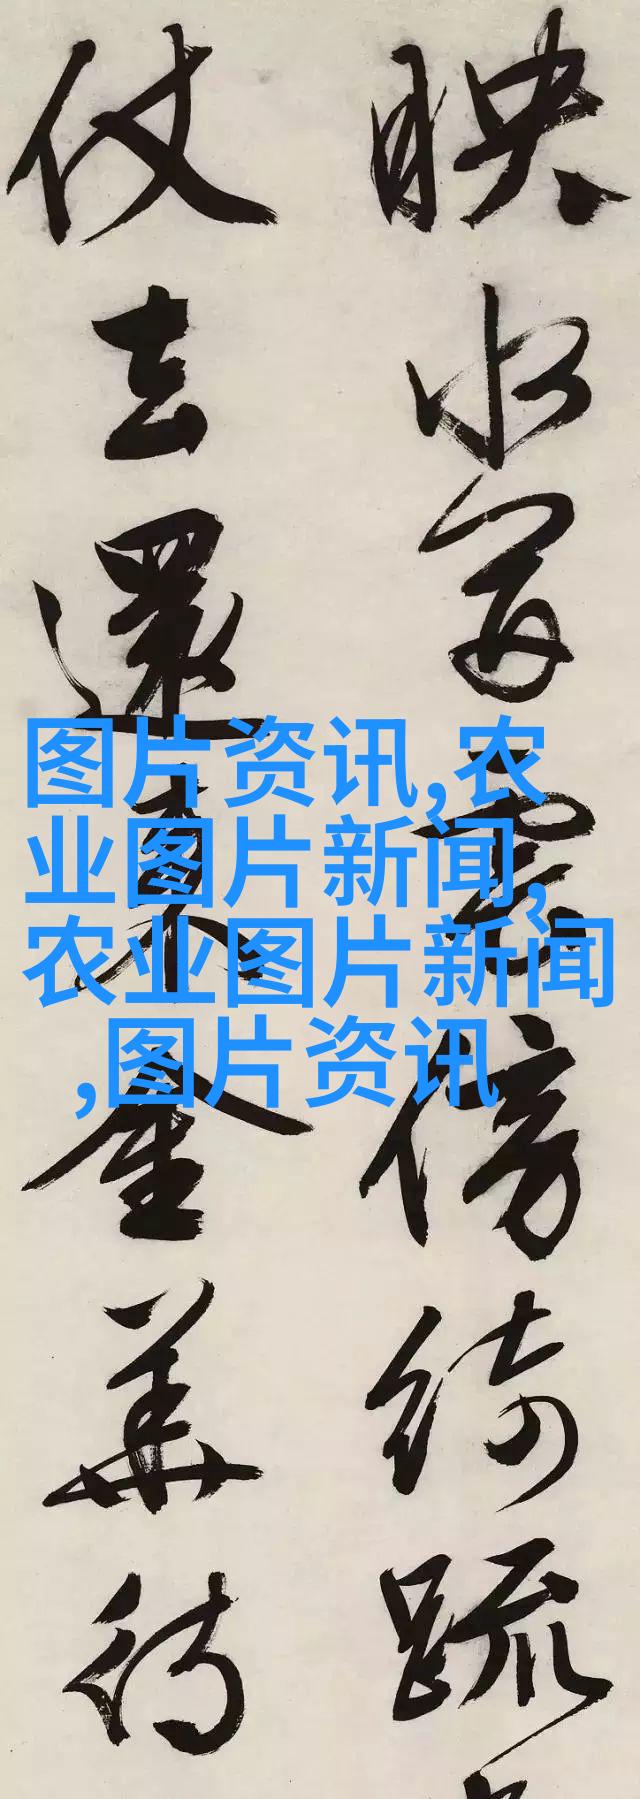 映水雲傍綺疏
仗去還金華待
图片资讯,农
业图片新闻,
农业图片新闻
,图片资讯